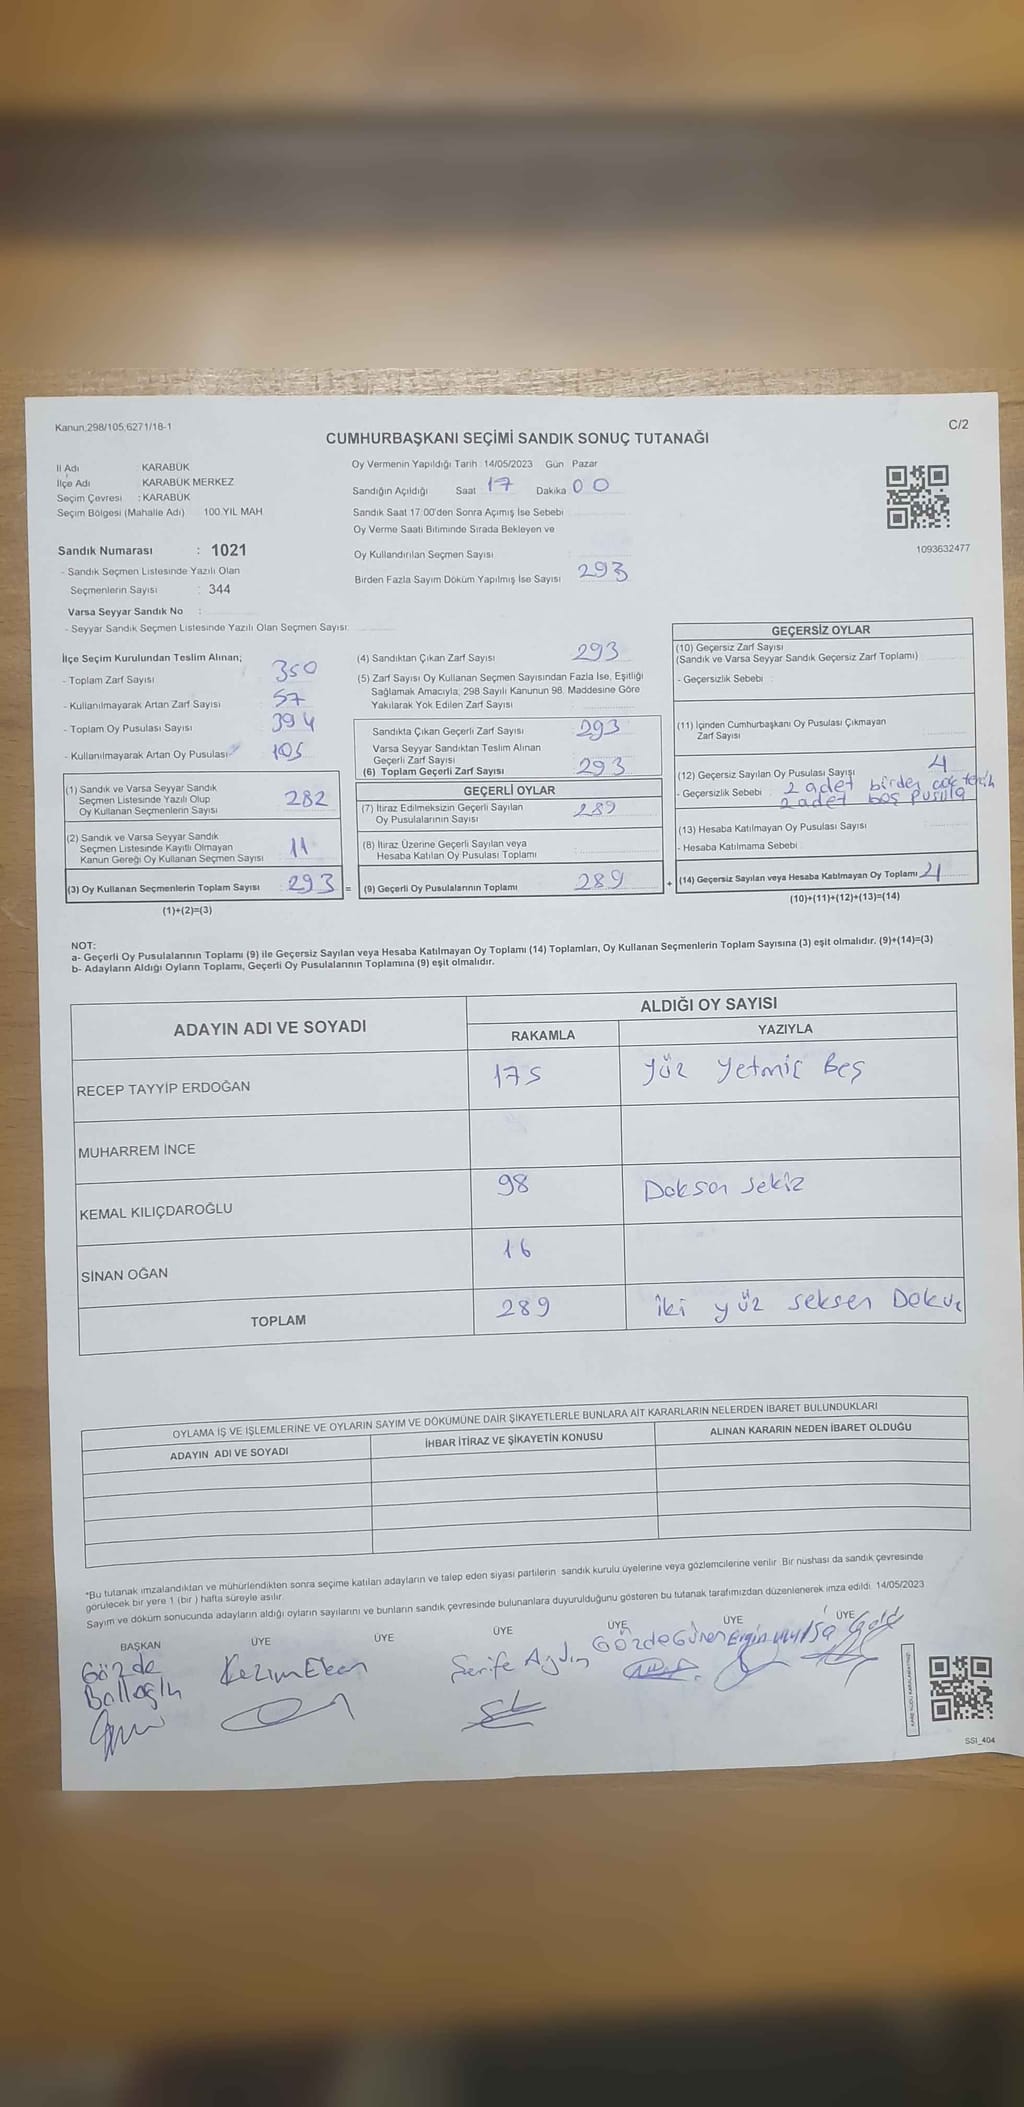 Kanun,298/105,6271/18-1
C/2
CUMHURBAŞKANI SEÇİMİ SANDIK SONUÇ TUTANAĞI
İl Adı : KARABÜK
İlçe Adı KARABÜK MERKEZ
Seçim Çevresi : KARABÜK
Seçim Bölgesi (Mahalle Adı) 100.YIL MAH
Sandık Numarası : 1021
- Sandık Seçmen Listesinde Yazılı Olan
Seçmenlerin Sayısı : 344
Varsa Seyyar Sandık No :
- Seyyar Sandık Seçmen Listesinde Yazılı Olan Seçmen Sayısı:
Oy Vermenin Yapıldığı Tarih : 14/05/2023 Gün : Pazar
Sandığın Açıldığı Saat 17 Dakika 00
Sandık Saat 17:00'den Sonra Açımış İse Sebebi
Oy Verme Saati Bitiminde Sırada Bekleyen ve
Oy Kullandırılan Seçmen Sayısı :
Birden Fazla Sayım Döküm Yapılmış İse Sayısı 293
1093632477
İlçe Seçim Kurulundan Teslim Alınan;
- Toplam Zarf Sayısı 350
- Kullanılmayarak Artan Zarf Sayısı 57
- Toplam Oy Pusulası Sayısı 394
- Kullanılmayarak Artan Oy Pusulası 105
(1) Sandık ve Varsa Seyyar Sandık
Seçmen Listesinde Yazılı Olup
Oy Kullanan Seçmenlerin Sayısı 282
(2) Sandık ve Varsa Seyyar Sandık
Seçmen Listesinde Kayıtlı Olmayan
Kanun Gereği Oy Kullanan Seçmen Sayısı 11
(3) Oy Kullanan Seçmenlerin Toplam Sayısı 293 =
(1)+(2)=(3)
(4) Sandıktan Çıkan Zarf Sayısı 293
(5) Zarf Sayısı Oy Kullanan Seçmen Sayısından Fazla İse, Eşitliği
Sağlamak Amacıyla; 298 Sayılı Kanunun 98. Maddesine Göre
Yakılarak Yok Edilen Zarf Sayısı
Sandıkta Çıkan Geçerli Zarf Sayısı 293
Varsa Seyyar Sandıktan Teslim Alınan
Geçerli Zarf Sayısı
(6) Toplam Geçerli Zarf Sayısı 293
GEÇERLİ OYLAR
(7) İtiraz Edilmeksizin Geçerli Sayılan
Oy Pusulalarının Sayısı 289
(8) İtiraz Üzerine Geçerli Sayılan veya
Hesaba Katılan Oy Pusulası Toplamı
(9) Geçerli Oy Pusulalarının Toplamı 289 +
GEÇERSİZ OYLAR
(10) Geçersiz Zarf Sayısı
(Sandık ve Varsa Seyyar Sandık Geçersiz Zarf Toplamı)
- Geçersizlik Sebebi :
(11) İçinden Cumhurbaşkanı Oy Pusulası Çıkmayan
Zarf Sayısı
(12) Geçersiz Sayılan Oy Pusulası Sayısı 4
- Geçersizlik Sebebi : 2 adet birden çok tercih
2 adet boş pusula
(13) Hesaba Katılmayan Oy Pusulası Sayısı
- Hesaba Katılmama Sebebi :
(14) Geçersiz Sayılan veya Hesaba Katılmayan Oy Toplamı 4
(10)+(11)+(12)+(13)=(14)
NOT:
a- Geçerli Oy Pusulalarının Toplamı (9) ile Geçersiz Sayılan veya Hesaba Katılmayan Oy Toplamı (14) Toplamları, Oy Kullanan Seçmenlerin Toplam Sayısına (3) eşit olmalıdır. (9)+(14)=(3)
b- Adayların Aldığı Oyların Toplamı, Geçerli Oy Pusulalarının Toplamına (9) eşit olmalıdır.
ADAYIN ADI VE SOYADI ALDIĞI OY SAYISI
RAKAMLA YAZIYLA
RECEP TAYYİP ERDOĞAN 175 Yüz Yetmiş Beş
MUHARREM İNCE
KEMAL KILIÇDAROĞLU 98 Doksan Sekiz
SİNAN OĞAN 16
TOPLAM 289 İki yüz seksen Doku
OYLAMA İŞ VE İŞLEMLERİNE VE OYLARIN SAYIM VE DÖKÜMÜNE DAİR ŞİKAYETLERLE BUNLARA AİT KARARLARIN NELERDEN İBARET BULUNDUKLARI
ADAYIN ADI VE SOYADI İHBAR İTİRAZ VE ŞİKAYETİN KONUSU ALINAN KARARIN NEDEN İBARET OLDUĞU
*Bu tutanak imzalandıktan ve mühürlendikten sonra seçime katılan adayların ve talep eden siyasi partilerin sandık kurulu üyelerine veya gözlemcilerine verilir. Bir nüshası da sandık çevresinde
görülecek bir yere 1 (bir ) hafta süreyle asılır.
Sayım ve döküm sonucunda adayların aldığı oyların sayılarını ve bunların sandık çevresinde bulunanlara duyurulduğunu gösteren bu tutanak tarafımızdan düzenlenerek imza edildi. 14/05/2023
BAŞKAN ÜYE ÜYE ÜYE ÜYE ÜYE ÜYE
Gözde Kezim Eken Şerife Aydın Gözde Güner Ergin
SSI_404